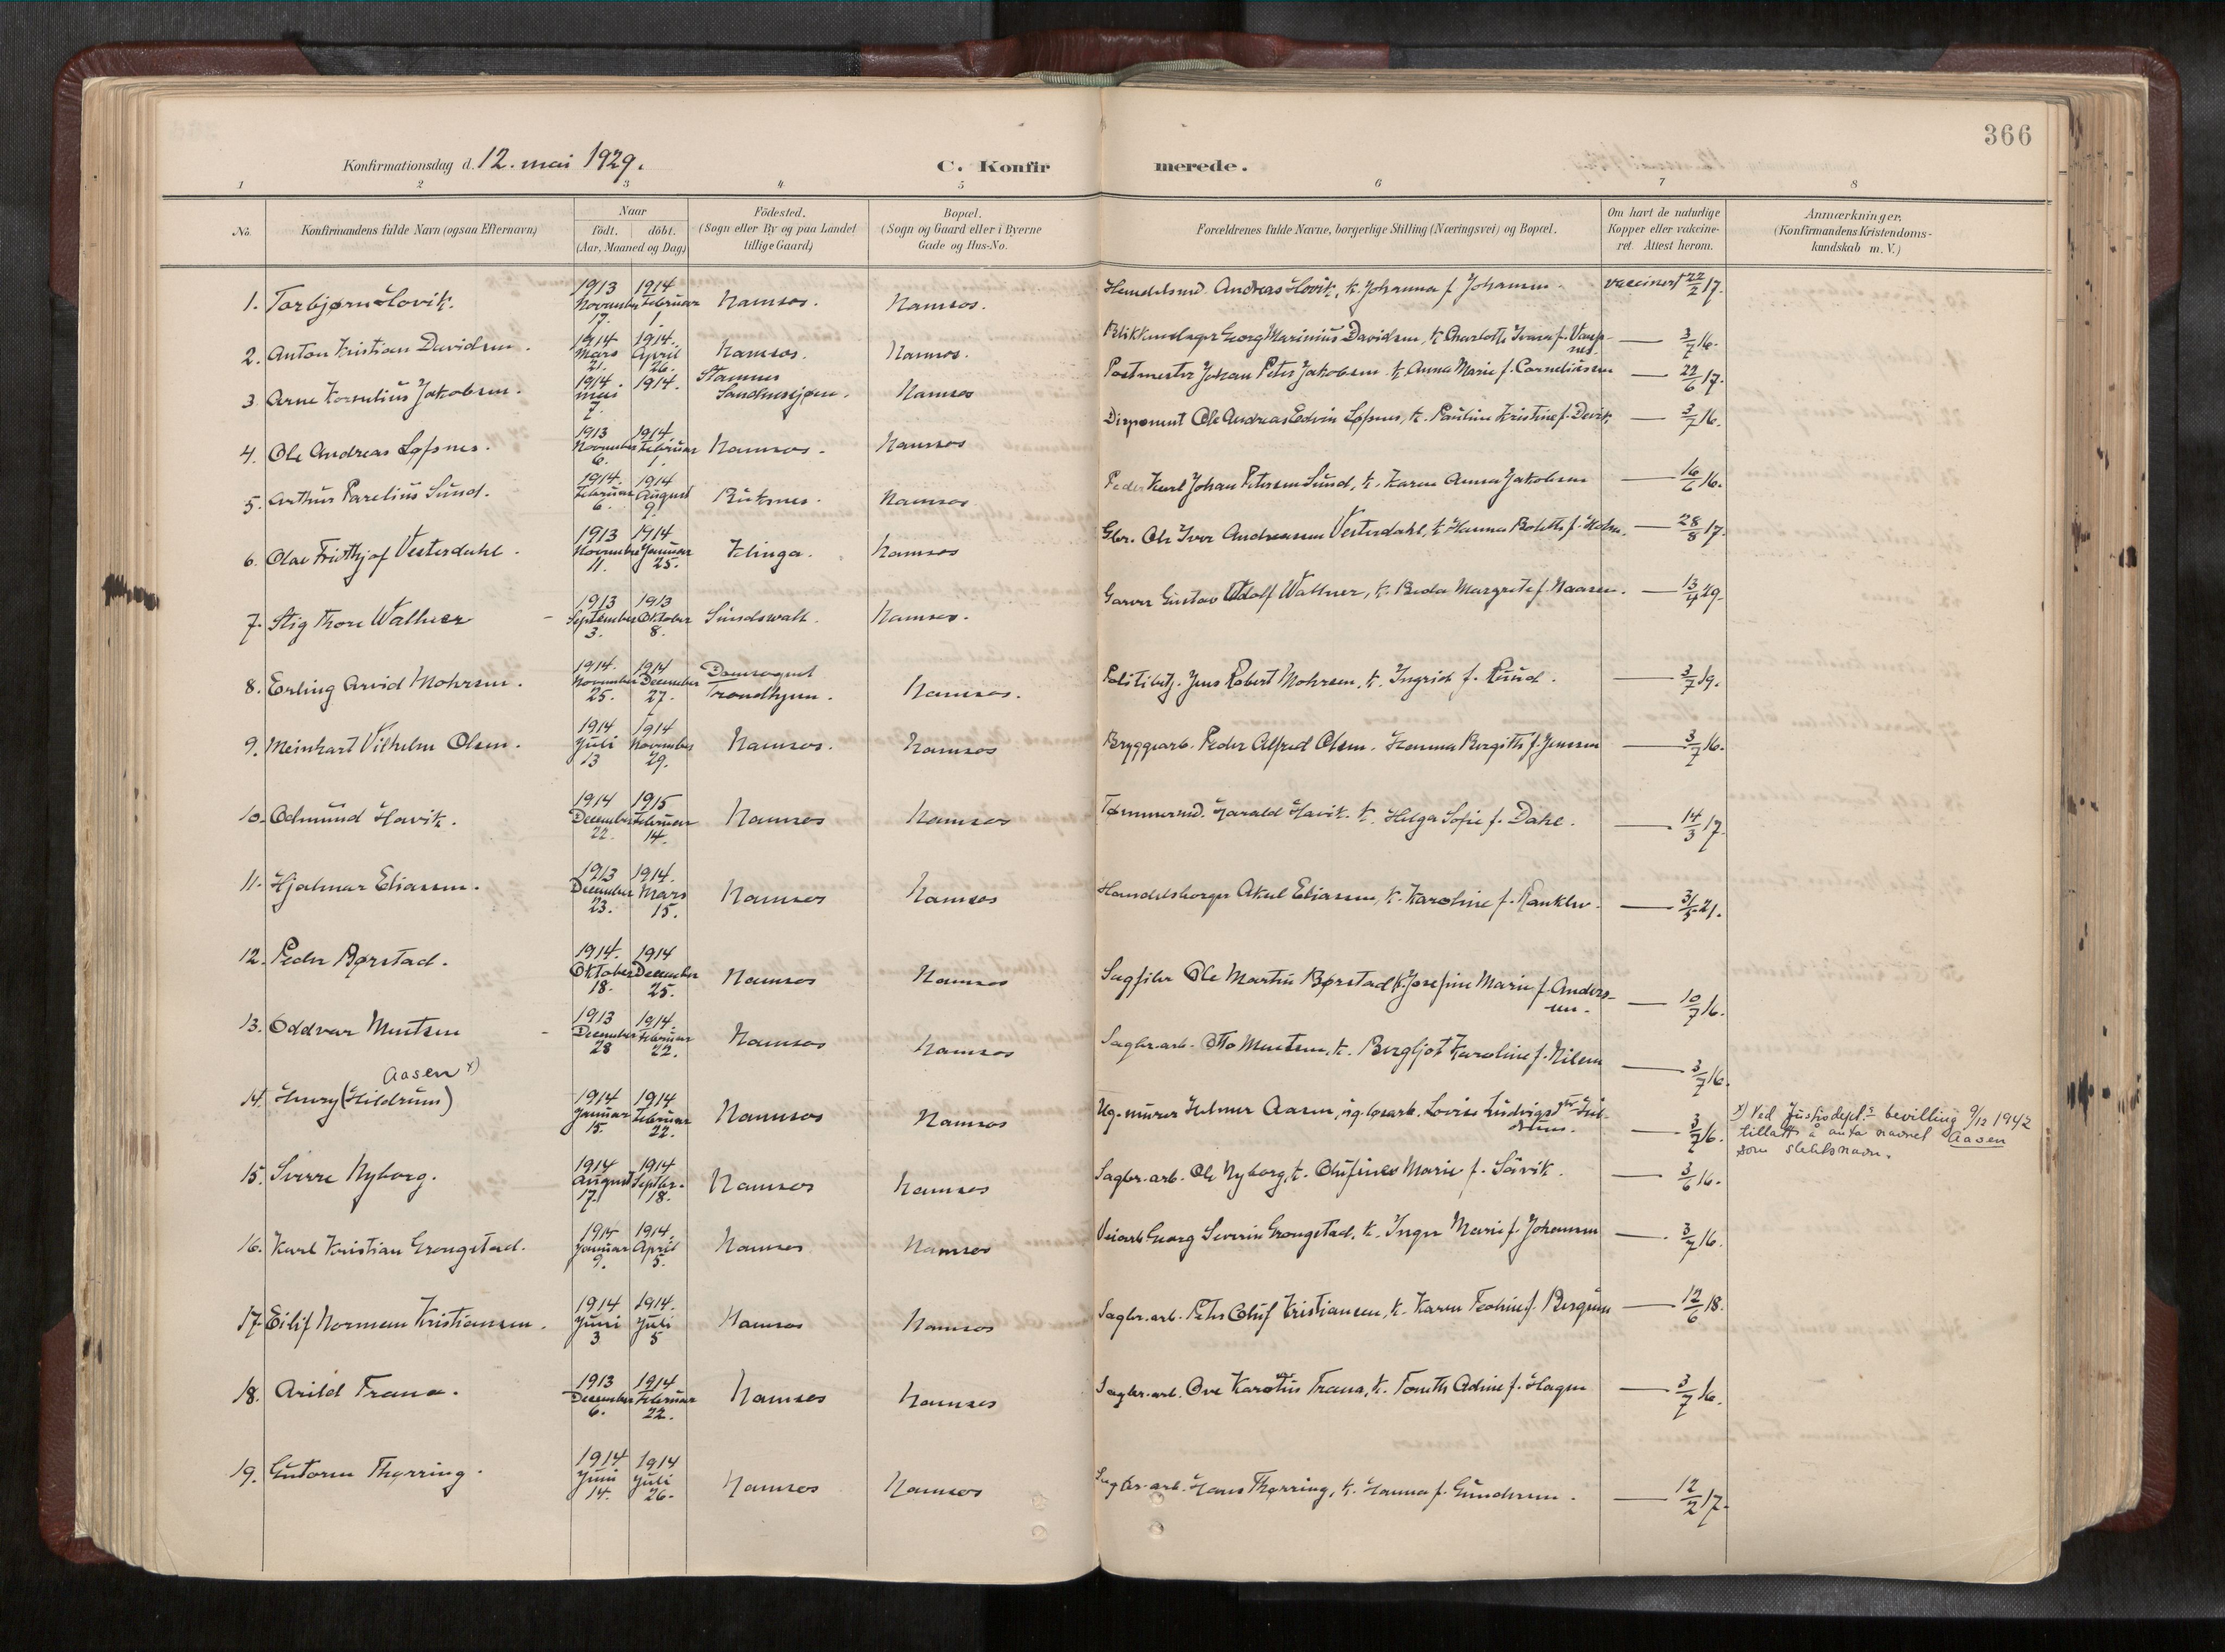 366
Konfirmationsdag d. 12. mai 1929.
C. Konfirmerede.
1 2 3 4 5 6 7 8
No.
Konfirmandens fulde Navn (ogsaa Efternavn)
Naar
födt. döbt.
(Aar, Maaned og Dag)
Födested.
(Sogn eller By og paa Landet
tillige Gaard)
Bopæl.
(Sogn og Gaard eller i Byerne
Gade og Hus-No.
Forældrenes fulde Navne, borgerlige Stilling (Næringsvei) og Bopæl.
Om havt de naturlige
Kopper eller vakcine-
ret. Attest herom.
Anmærkninger.
(Konfirmandens Kristendoms-
kundskab m. V.)
1. Torbjørn Hovik. 1913 November 17. 1914 Februar 1. Namsos. Namsos. Handelsmd. Andreas Hovik, k. Johanna f. Johansen. vaccinert 22/2 17.
2. Anton Kristian Davidsen. 1914 Mars 21. 1914. April 26. Namsos. Namsos. Blikkenslager Georg Marinius Davidsen, k. Charlotte f. — 3/7 16.
3. Arne Kornelius Jakobsen. 1914. mai 7. 1914. Stamnes Sandnessjøen. Namsos Postmester Johan Peter Jakobsen k. Anna Marie f. Corneliussen — 22/6 17.
4. Ole Andreas Løfsnes. 1913 November 6. 1914. Februar 1. Namsos. Namsos Disponent Ole Andreas Edvin Løfsnes, k. Pauline Kristine f. Devik, — 3/7 16.
5. Arthur Parelius Sund. 1914. Februar 6. 1914 August 9. Namsos. Peder Karl Johan Petersen Sund, k. Karen Anna Jakobsen — 16/6 16.
6. Olav Fridthjof Vesterdahl. 1913 November 11. 1914 Januar 25. Klinga. Namsos Gbr. Ole Iver Andreassen Vesterdahl, k. Hanna Bolette f. Holm. — 28/8 17.
7. Stig Thore Wallner 1913 September 3. 1913 Oktober 8. Sundswall. Namsos. Garver Gustav Adolf Wallner, k. Beda Margrete f. Naasen. — 13/4 29.
8. Erling Arvid Mohrsen. 1914. November 25. 1914 December 27. Domsognet Trondhjem. Namsos. Politibetj. Jens Robert Mohrsen, k. Ingrid f. Ruud. — 3/7 19.
9. Meinhart Vilhelm Olsen. 1914 Juli 13 1914 November 29. Namsos. Namsos Bryggearb. Peder Alfred Olsen. Hanna Bergitte f. Jenssen — 3/7 16.
10. Odmund Havik. 1914 December 22. 1915 Februar 14. Namsos Namsos Tømmermd. Harald Havik. k. Helga Sofie f. Dahl. — 14/3 17.
11. Hjalmar Eliassen. 1913 December 23. 1914. Mars 15. Namsos Namsos Handelsborger Aksel Eliassen, k. Karoline f. Ranklev. — 31/5 21.
12. Peder Børstad. 1914. Oktober 18. 1914 December 25. Namsos Namsos Sagfiler Ole Martin Børstad k. Josefine Marie f. Anders-
sen. — 10/7 16.
13. Oddvar Mentsen 1913 December 28 1914. Februar 22. Namsos Namsos Sagbr.arb. Otto Mentsen, k. Bergljot Karoline f. Nilsen — 3/7 16.
Aasen x)
14. Henry (Hildrum) 1914 Januar 15. 1914 Februar 22. Namsos Namsos Ug. murer Helmer Aasen, ug. Lovise Ludvigsdtr. Hil-
drum. — 3/7 16. x) Ved Justisdept.s bevilling 9/12 1942
tillatt å anta navnet Aasen
som slektsnavn.
15. Sverre Nyborg. 1914 August 17. 1914 Septbr. 18. Namsos Namsos Sagbr. arb. Ole Nyborg, k. Marie f. Sövik. — 3/6 16.
16. Karl Kristian Grongstad. 1914 Januar 9. 1914. April 5. Namsos Namsos Veiarb Georg Severin Grongstad, k. Inger Marie f. Johansen — 3/7 16.
17. Eilif Norman Kristiansen. 1914 Juni 3 1914. Juli 5 Namsos Namsos Sagbr. arb. Peter Oluf Kristiansen, k. Karen Fedine f. Bergum — 12/6 18.
18. Arild Frana. 1913 December 6. 1914 Februar 22. Namsos Namsos Sagbr. arb. Ove Frana, k. Adine f. Hagen — 3/7 16.
19. Guttorm Thørring. 1914 Juni 14. 1914 Juli 26. Namsos Namsos Sagbr. arb. Hans Thørring, k. Hanna f. Gundersen. — 12/2 17.